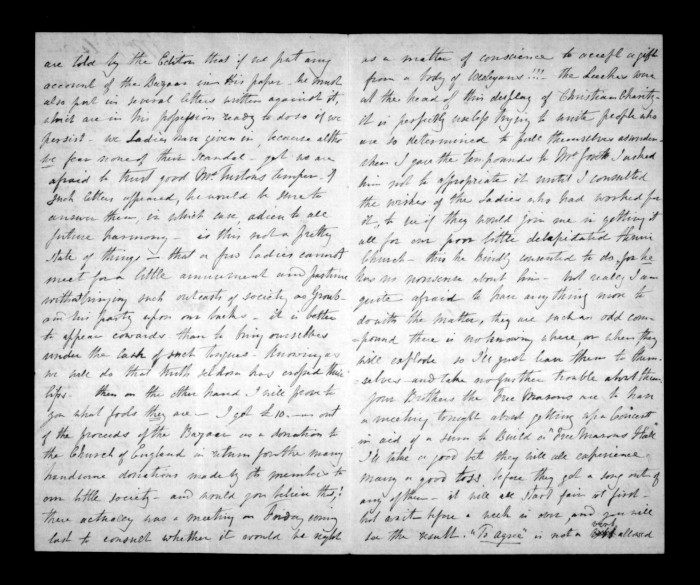 are told by the Editor that if we put any
account of the Bazaar in His paper - he must
also put in several letters written against it,
which are in his possession ready to do so if we
persist - we Ladies have given in, because altho
we fear none of their scandal - yet we are
afraid to trust good Mr. Turtons temper. if
such letters appeared, he would be sure to
answer them, in which case adieu to all
future harmony - is this not a pretty
state of things - that a few ladies cannot
meet for a little amusement and pastime
without bringing such outcasts of society as
and his party upon our backs - it is better
to appear cowards than to bring ourselves
under the lash of such tongues. Knowing as
we all do that truth seldom has crossed their
lips. then on the other hand I will prove to
you what fools they are - I got £10.- - out
of the proceeds of the Bazaar as a donation to
the Church of England in return for the many
handsome donations made by its member to
our little society - and would you believe this!
there actually was a meeting on Friday evening
last to consult whether it would be right
as a matter of conscience to accept a gift
from a body of Wesleyans!!! the deechers were
at the head of this display of Christian Charity -
it is perfectly useless trying to unite people who
are so determined to pull themselves asunder -
when I gave the ten pounds to Mr. I asked
him not to appropriate it until I consulted
the wishes of the Ladies who had worked for
it, to see if they would join me in getting it
all for our poor little delapidated
Church - this he kindly consented to do, for he
has no nonsense about him - but really I am
quite afraid to have anything more to
do with the matter, they are such an odd com-
pound there is no knowing where, or when they
will explode so I'll just leave them to them-
-selves - and take no further trouble about them.
your Brothers the Free Masons are to have
a meeting tonight about getting up a Concert
in aid of a sum to Build a "Free Masons Hall"
I'll take a good bit they will all experience
many a good toss, before they get a song out of
any of them - it will all start fair at first -
but wait before a week is over, and you will
see the result. "To agree" is not a word allowed